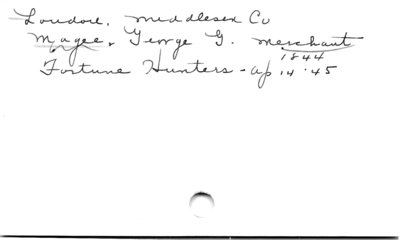 London. Middlesex Co
Magee, George G. merchant
1844
Fortune Hunters - Ap 14 '45